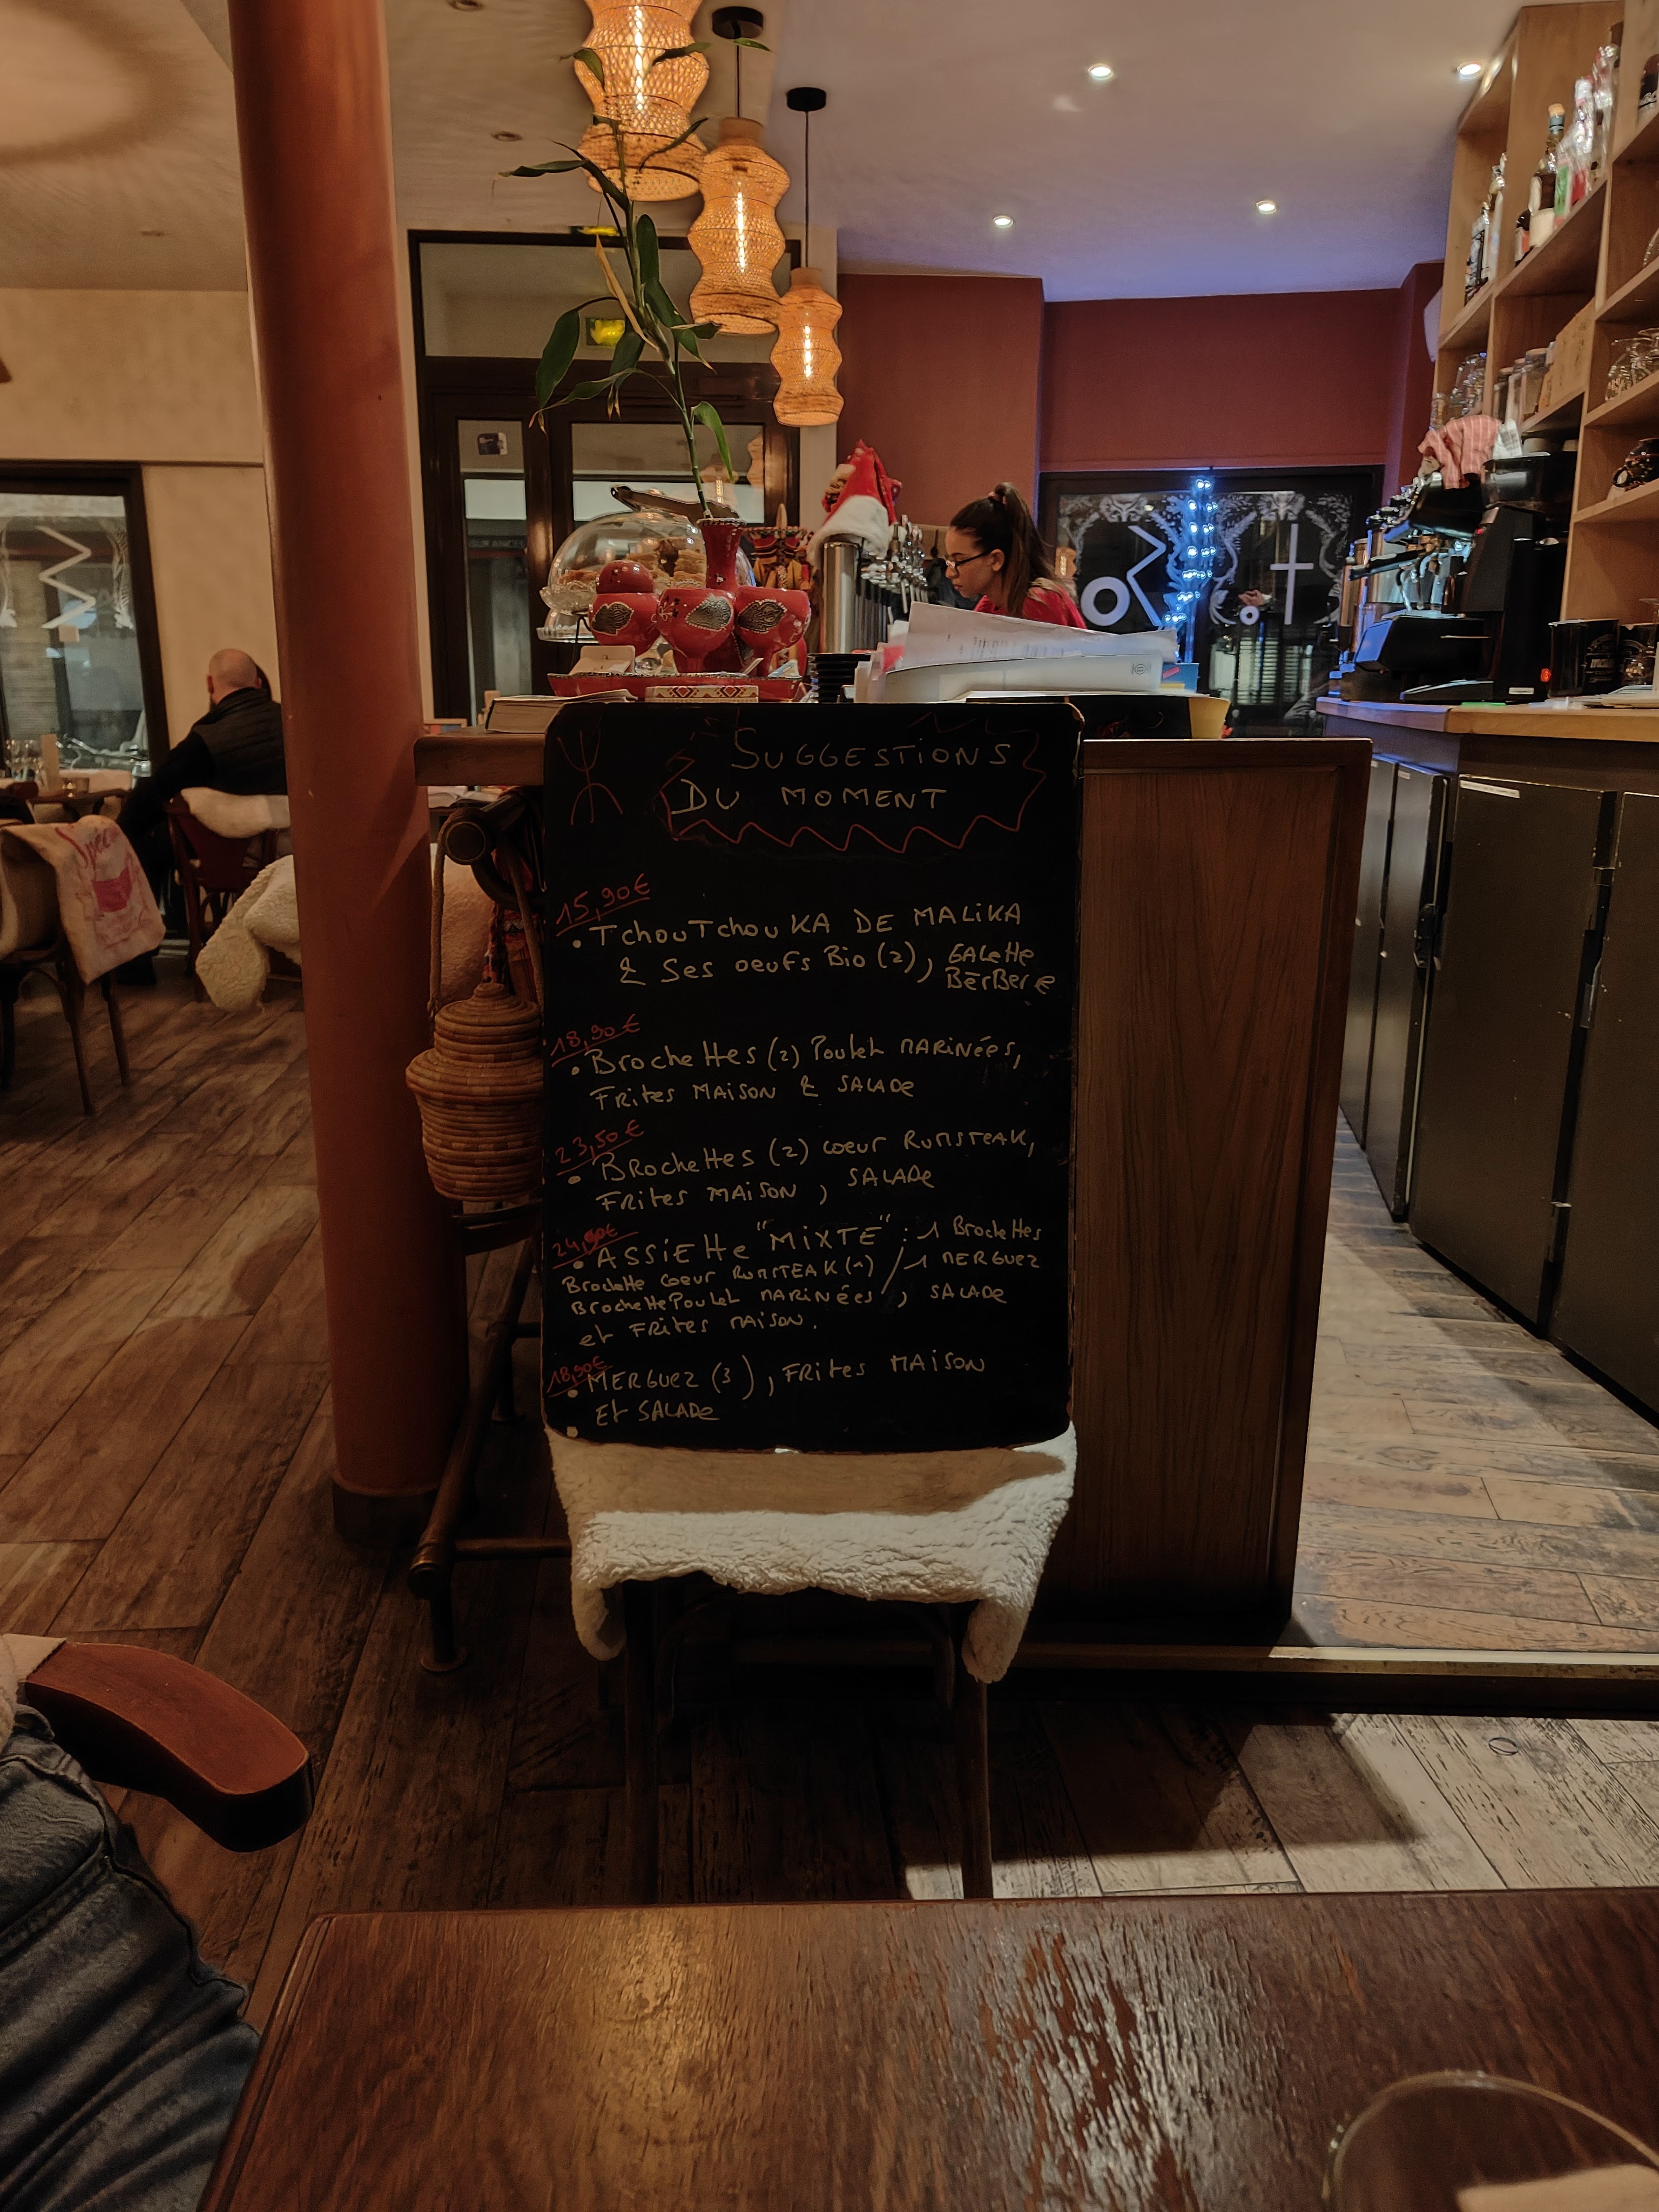 SUGGESTIONS
DU MOMENT
15,90€
• TchouTchouKA DE MALiKA
& Ses oeufs Bio (2), GALette
BerBere
18,90€
• Brochettes (2) Poulet MARiNées,
FRites MAiSON & SALADe
23,50€
• BRochettes (2) coeur RUMSTEAK,
FRites MAiSON, SALADe
24,90€
• ASSiEtte "MiXTE" : 1 Brochettes
Brochette coeur RUMSTEAK (1) / 1 MERGUEZ
Brochette Poulet MARiNées, SALADe
et FRites MAiSON.
18,90€
• MERGUEZ (3), FRites MAiSON
Et SALADe
Spécu